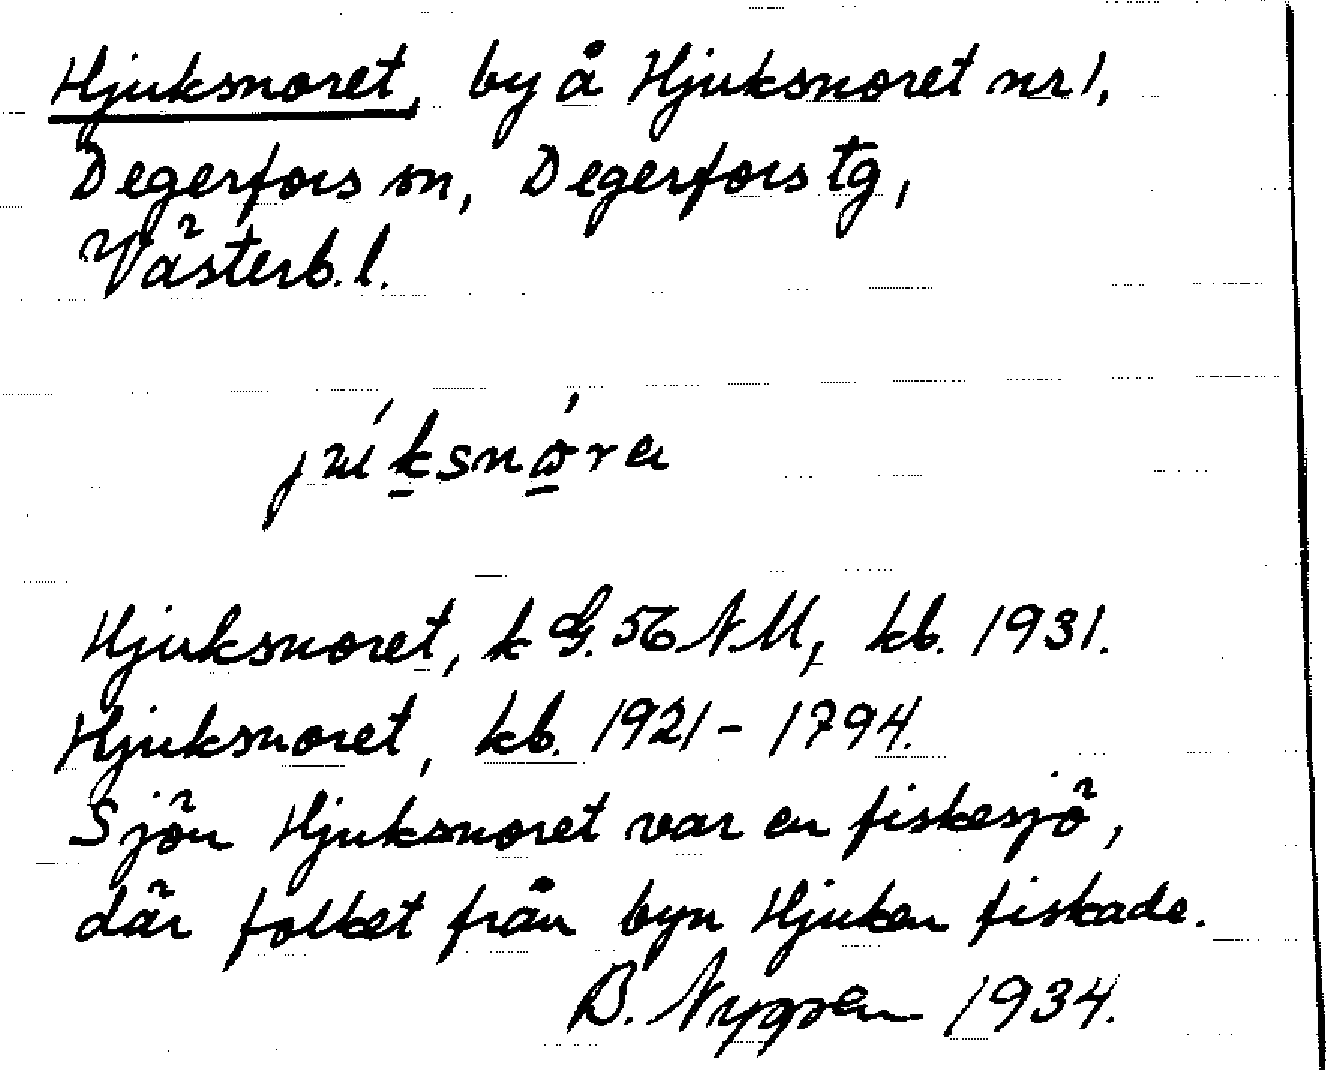 Hjuksnoret, by å Hjuksnoret nr 1,
Degerfors sn, Degerfors tg,
Västerb. l.
Hjuksnoret, k G. 56 NM, kb. 1931.
Hjuksnoret, kb. 1921 - 1794.
Sjön Hjuksnoret var en fiskesjö,
där folket från byn Hjuken fiskade.
B. Nygren 1934.